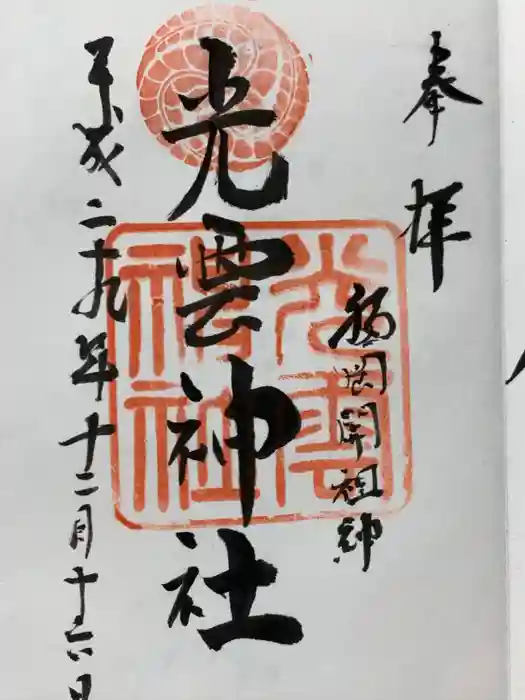 奉拝
福岡開祖神
光雲神社
平成二十九年十二月十六日
光雲
神社